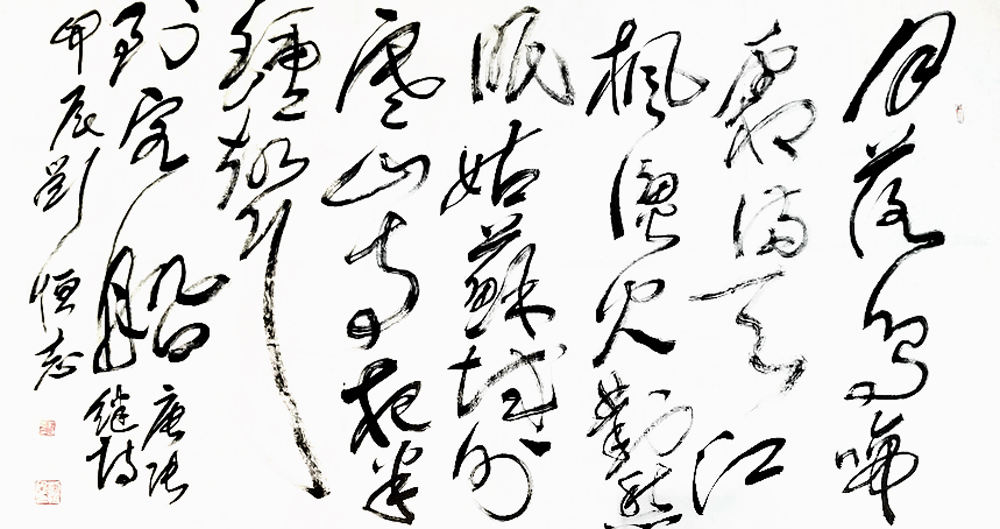 月落烏啼
霜滿天江
楓漁火對愁
眠姑蘇城外
寒山寺夜半
鐘聲
到客船
唐張
繼詩
甲辰劉恒志